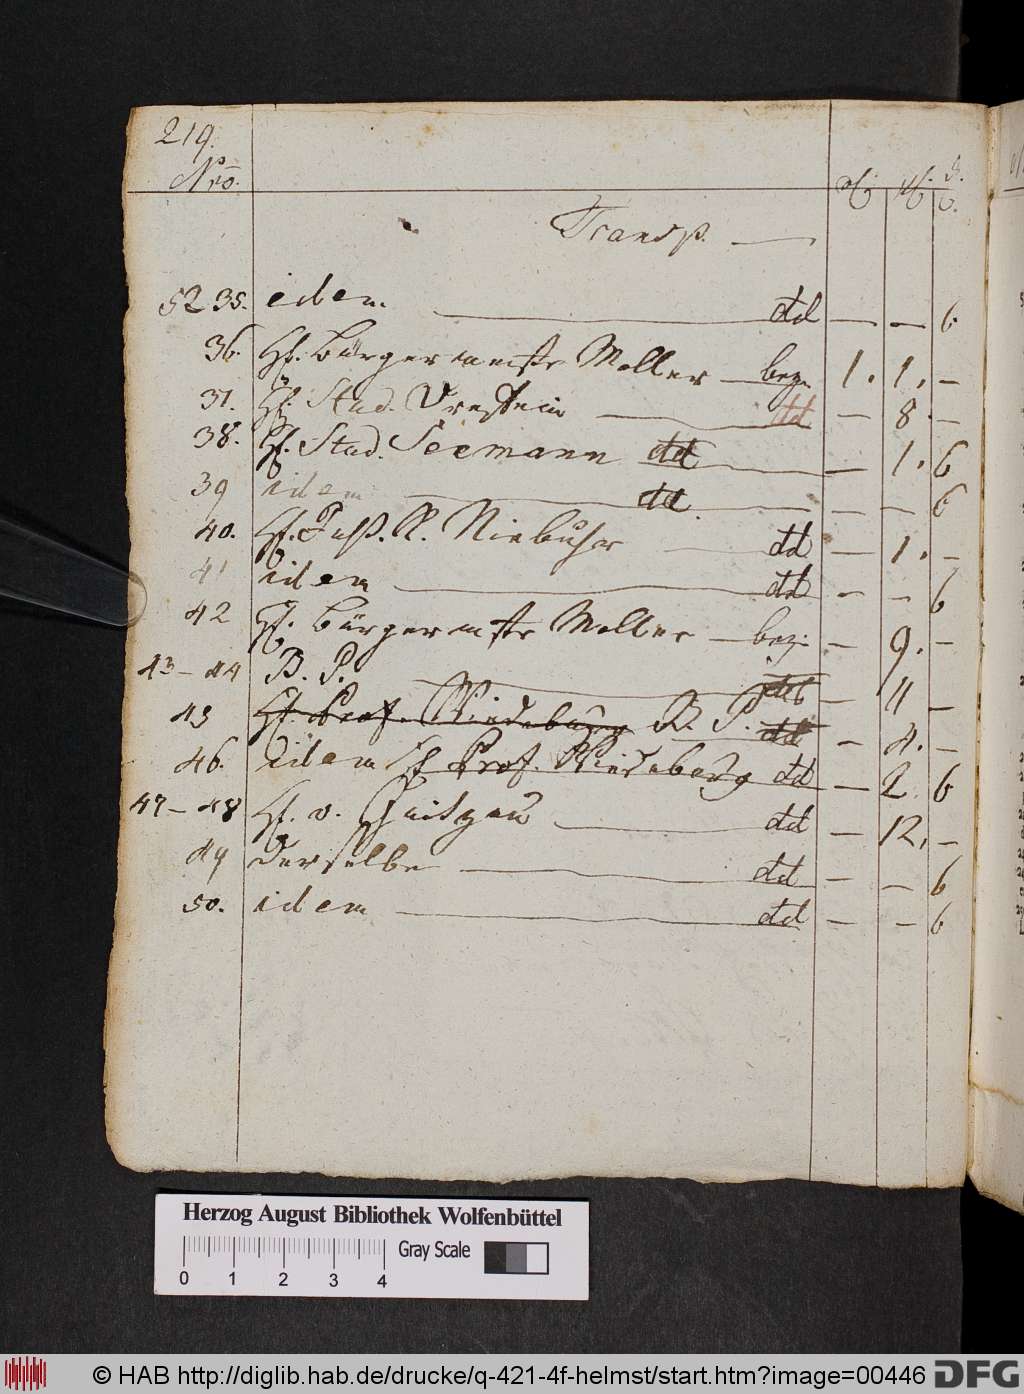 219.
Nro.
Transp. —
5235. idem — dd — — 6
36. H. Bürgermeistr Moller — bez. 1. 1. —
37. H. Stud. — dd — 8. —
38. H. Stud. Seemann dd — 1. 6
39 idem — dd — — 6
40. H. R. Niebuhr — dd — 1. —
41 idem — dd — — 6
42 H. Bürgermstr Moller — bez. — 9. —
43 - 44 B. P. — — 11 —
45 H. Prof. Wiedeburg B. P. dd — 4. —
46. idem H Prof. Wiedeburg dd — 2. 6
47 - 48 H. v. — dd — 12. —
49 Derselbe — dd — — 6
50. idem — dd — — 6
Herzog August Bibliothek Wolfenbüttel
Gray Scale
0 1 2 3 4
© HAB http://diglib.hab.de/drucke/q-421-4f-helmst/start.htm?image=00446
DFG